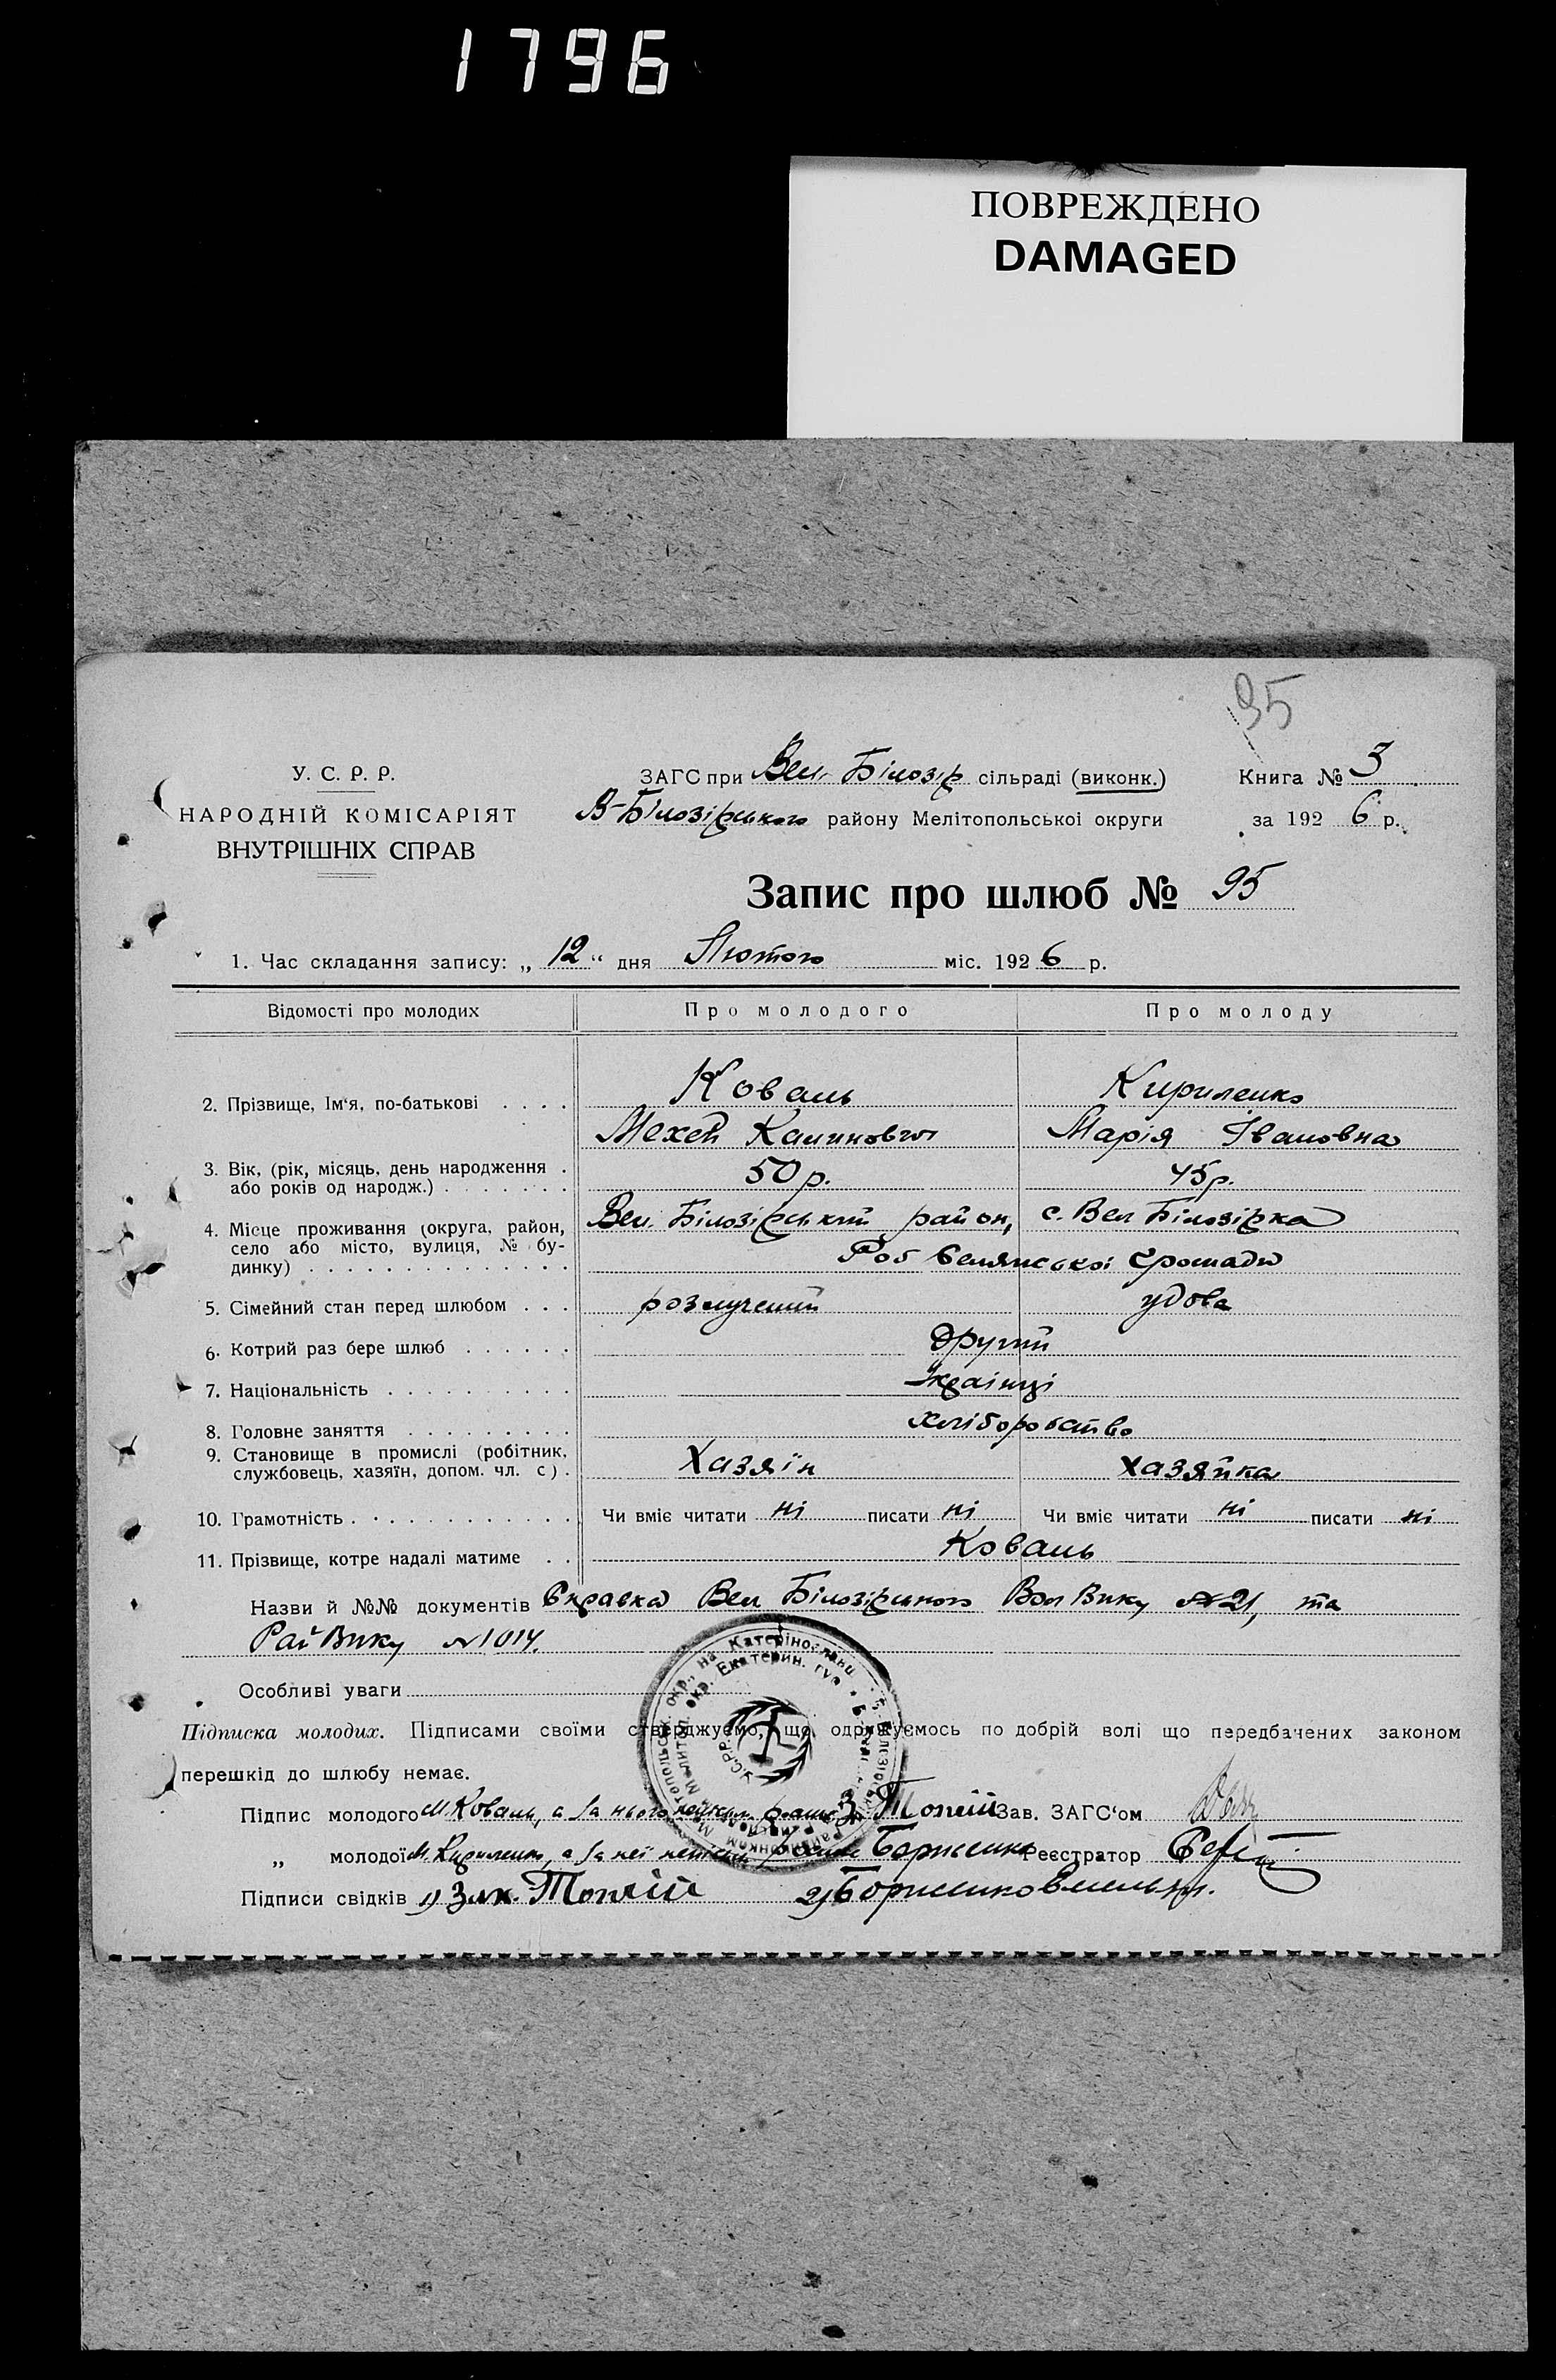 1796
ПОВРЕЖДЕНО
DAMAGED
95
У. С. Р. Р.
НАРОДНІЙ КОМІСАРІЯТ
ВНУТРІШНІХ СПРАВ
ЗАГС при Вел. Білозір сільраді (виконк.) Книга № 3
В-Білозірського району Мелітопольської округи за 192 6 р.
Запис про шлюб № 95
1. Час складання запису: „ 12 “ дня Лютого міс. 192 6 р.
Відомості про молодих Про молодого Про молоду
2. Прізвище, Ім‘я, по-батькові . . . . Коваль Кириленко
Мехей Калинович Марія Івановна
3. Вік, (рік, місяць, день народження . 50 р. 45 р.
або років од народж.) . . . . . . .
4. Місце проживання (округа, район, Вел. Білозірський район, с. Вел Білозірка
село або місто, вулиця, № бу-
динку) . . . . . . . . . . . . . . Роб Селянської Громади
5. Сімейний стан перед шлюбом . . . розлучений удова
6. Котрий раз бере шлюб . . . . . . Другий
7. Національність . . . . . . . . . . Українці
8. Головне заняття . . . . . . . . . хліборобство
9. Становище в промислі (робітник, Хазяїн хазяйка
службовець, хазяїн, допом. чл. с) .
10. Грамотність . . . . . . . . . . . . Чи вміє читати ні писати ні Чи вміє читати ні писати ні
11. Прізвище, котре надалі матиме . . Коваль
Назви й №№ документів Справка Вел Білозірського Вол Вику №21, та
Рай Вику №1014.
Особливі уваги
Підписка молодих. Підписами своїми стверджуємо, що одружуємось по добрій волі що передбачених законом
перешкід до шлюбу немає.
Підпис молодого М. Коваль, а за нього З. Топчій Зав. ЗАГС‘ом
„ молодої М. Кириленко, а за неї Борисенко Реєстратор
Підписи свідків 1) Топчій 2) Борисенко